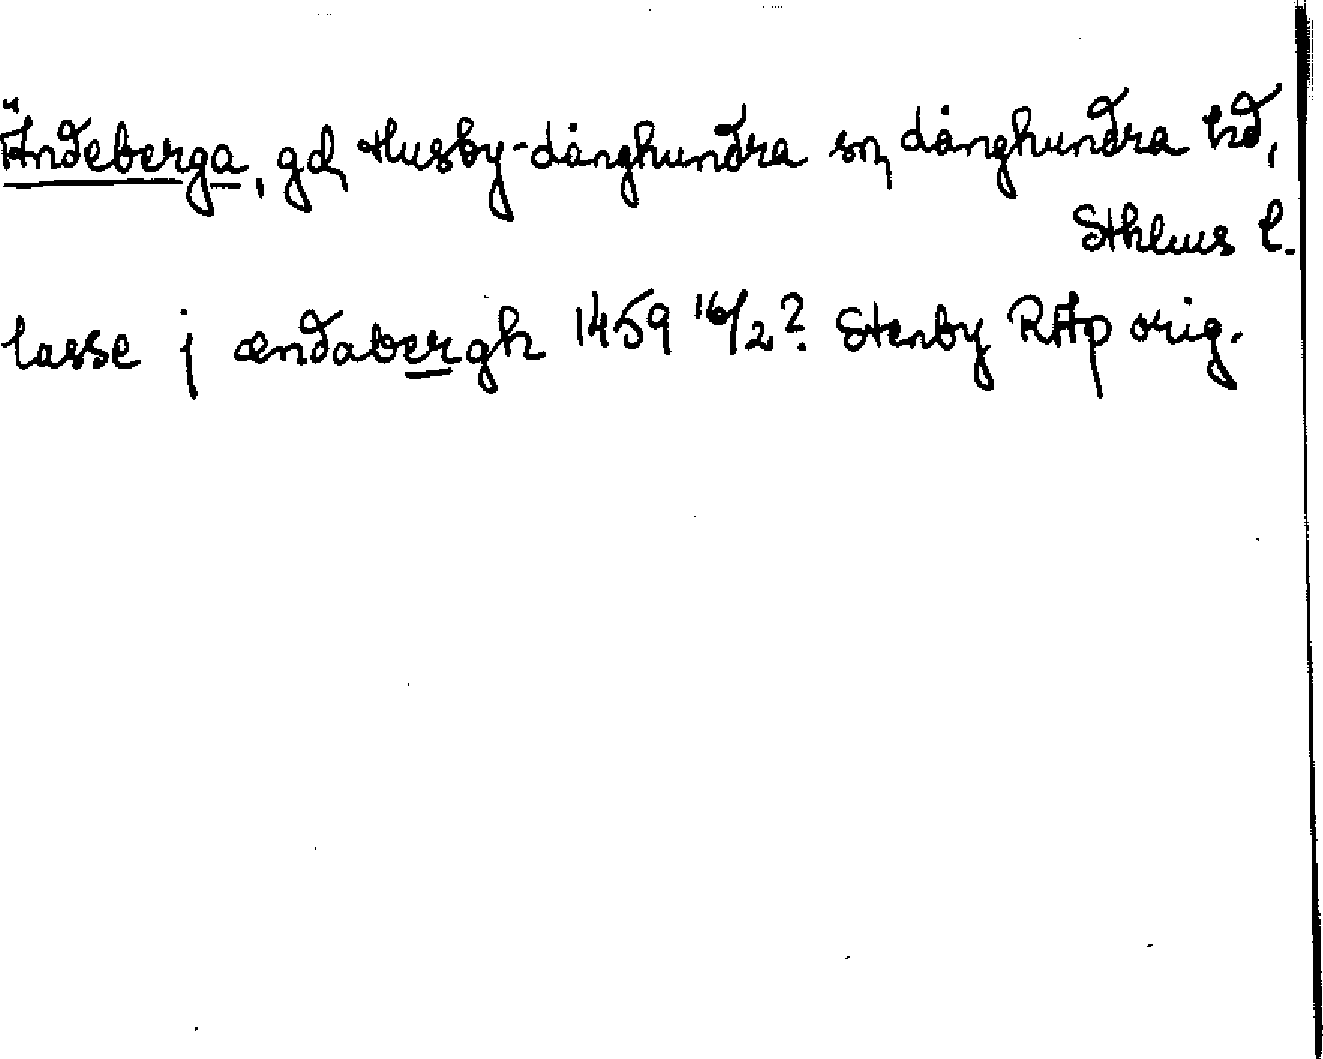 Ändeberga, gd, Husby-Långhundra sn, Långhundra hd,
Sthlms l.
lasse j ændabergh 1459 16/2? Stenby RAp orig.